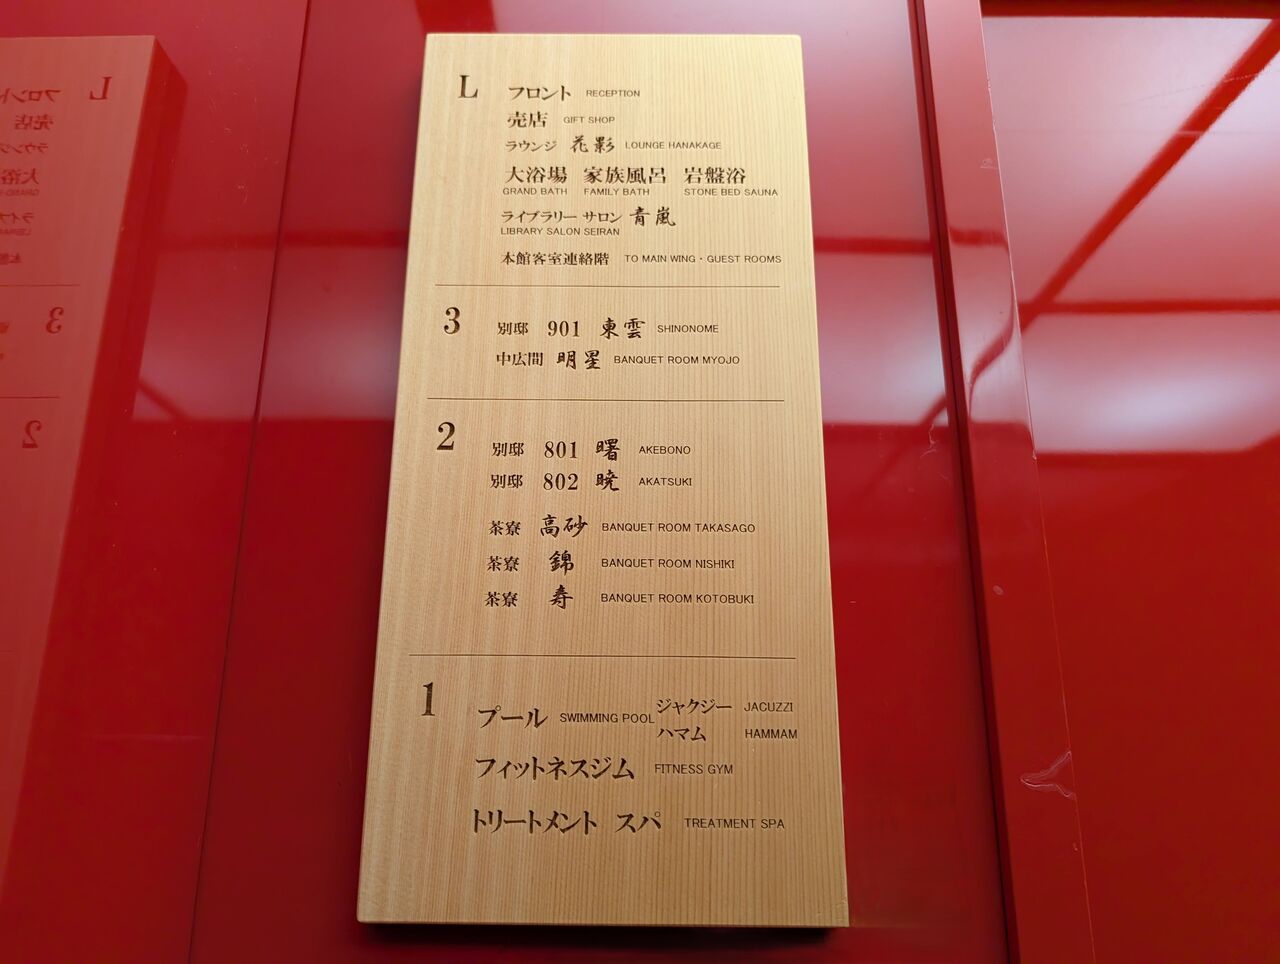 L フロント RECEPTION
売店 GIFT SHOP
ラウンジ 花影 LOUNGE HANAKAGE
大浴場 家族風呂 岩盤浴
GRAND BATH FAMILY BATH STONE BED SAUNA
ライブラリー サロン 青嵐
LIBRARY SALON SEIRAN
本館客室連絡階 TO MAIN WING・GUEST ROOMS
3 別邸 901 東雲 SHINONOME
中広間 明星 BANQUET ROOM MYOJO
2 別邸 801 曙 AKEBONO
別邸 802 暁 AKATSUKI
茶寮 高砂 BANQUET ROOM TAKASAGO
茶寮 錦 BANQUET ROOM NISHIKI
茶寮 寿 BANQUET ROOM KOTOBUKI
1 プール SWIMMING POOL ジャクジー JACUZZI
ハマム HAMMAM
フィットネスジム FITNESS GYM
トリートメント スパ TREATMENT SPA